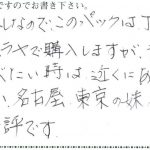 ですのでお書き下さい。
しなので、このパックは丁
ラヤで購入しますが、
べたい時は近くにあ
、名古屋、東京の妹
評です。